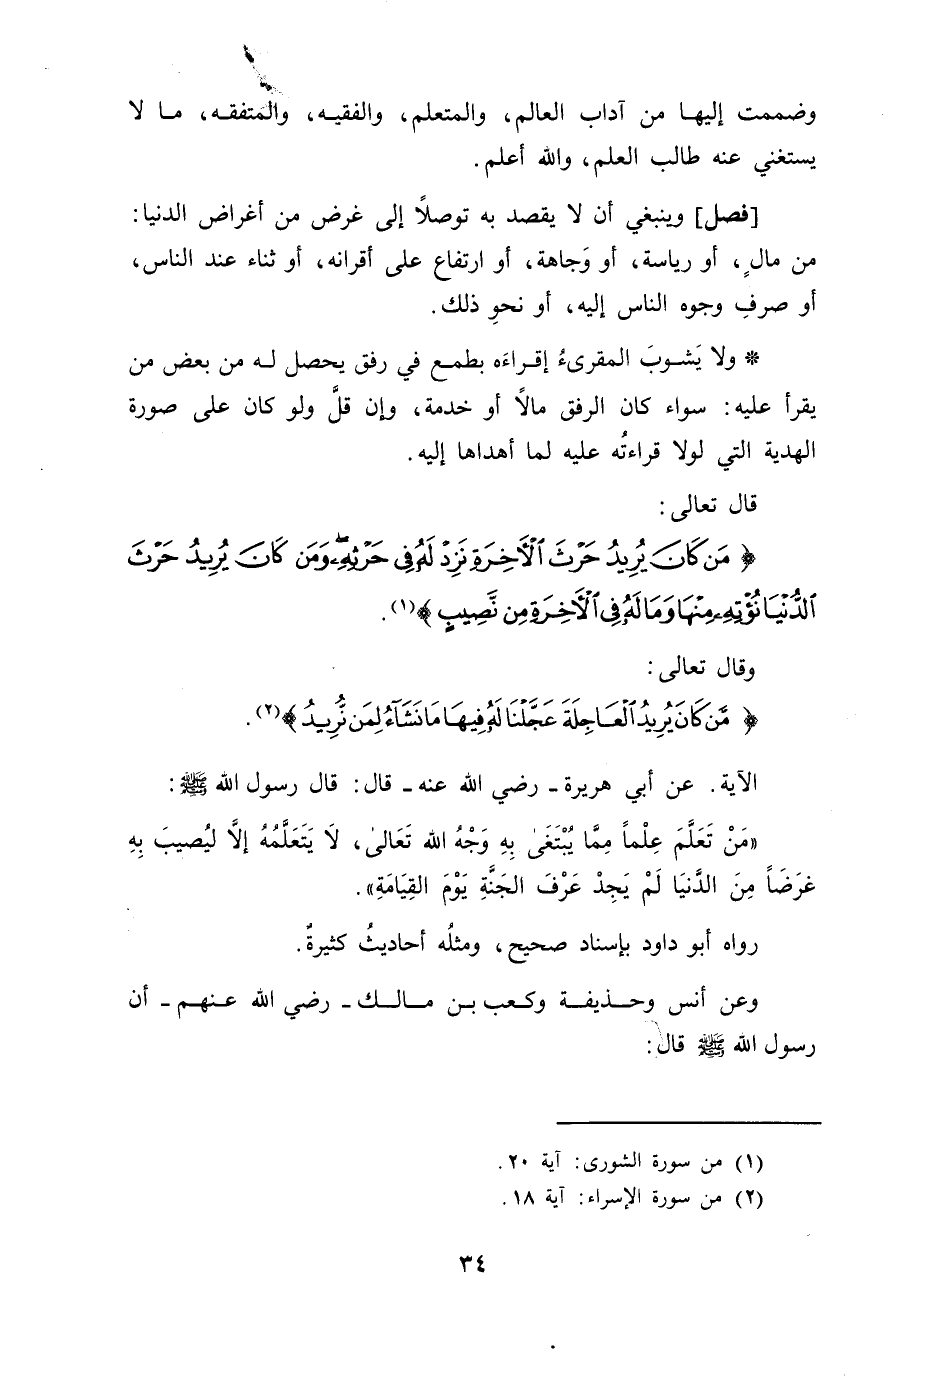 وضممت إليها من آداب العالم، والمتعلم، والفقيه، والمتفقه، ما لا
يستغني عنه طالب العلم، والله أعلم.
[فصل] وينبغي أن لا يقصد به توصلاً إلى غرض من أغراض الدنيا:
من مالٍ، أو رياسة، أو وَجاهة، أو ارتفاع على أقرانه، أو ثناء عند الناس،
أو صرفِ وجوه الناس إليه، أو نحوِ ذلك.
* ولا يَشوبَ المقرىءُ إقراءَه بطمع في رفق يحصل له من بعض من
يقرأ عليه: سواء كان الرفق مالًا أو خدمة، وإن قلَّ ولو كان على صورة
الهدية التي لولا قراءتُه عليه لما أهداها إليه.
قال تعالى:
﴿ مَن كَانَ يُرِيدُ حَرْثَ ٱلْأَخِرَةِ نَزِدْ لَهُۥ فِى حَرْثِهِۦۖ وَمَن كَانَ يُرِيدُ حَرْثَ
ٱلدُّنْيَا نُؤْتِهِۦ مِنْهَا وَمَا لَهُۥ فِى ٱلْأَخِرَةِ مِن نَّصِيبٍ ﴾(١).
وقال تعالى:
﴿ مَّن كَانَ يُرِيدُ ٱلْعَاجِلَةَ عَجَّلْنَا لَهُۥ فِيهَا مَا نَشَآءُ لِمَن نُّرِيدُ ﴾(٢).
الآية. عن أبي هريرة ـ رضي الله عنه ـ قال: قال رسول الله ﷺ:
«مَنْ تَعَلَّمَ عِلْماً مِمَّا يُبْتَغَىٰ بِهِ وَجْهُ الله تَعَالىٰ، لَا يَتَعَلَّمُهُ إلَّا لِيُصيبَ بِهِ
غرَضَاً مِنَ الدَّنيَا لَمْ يَجِدْ عَرْفَ الجَنَّةِ يَوْمَ القِيَامَةِ».
رواه أبو داود بإسناد صحيح، ومثلُه أحاديثُ كثيرةٌ.
وعن أنس وحذيفة وكعب بن مالك ـ رضي الله عنهم ـ أن
رسول الله ﷺ قال:
(١) من سورة الشورى: آية ٢٠.
(٢) من سورة الإسراء: آية ١٨.
٣٤